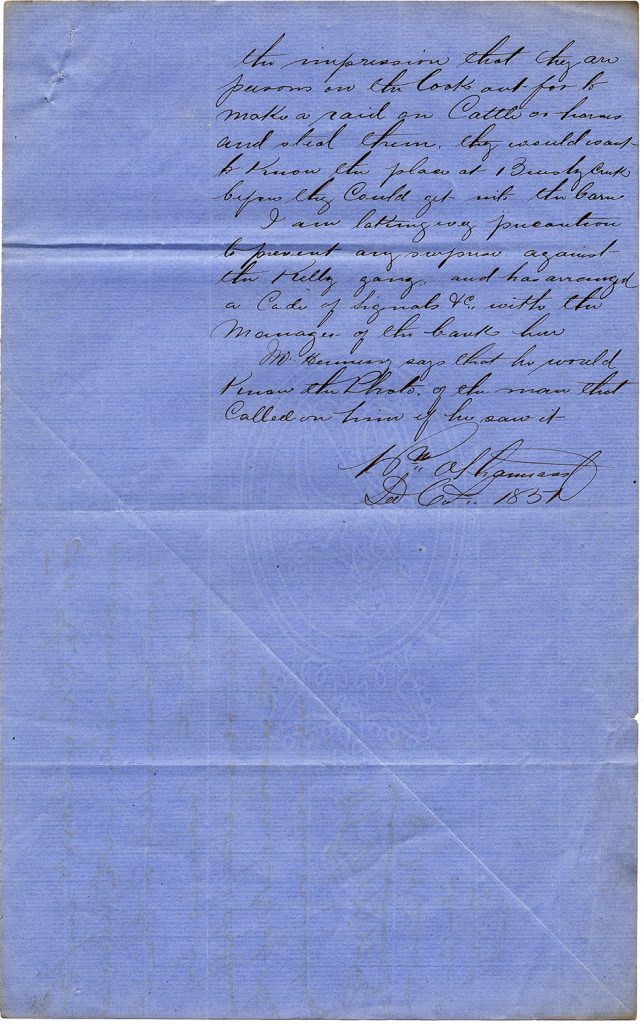 the impression that they are
persons on the look out for to
make a raid on Cattle or horses
and steal them. they would want
to Know the place at Brushy Creek
before they Could get into the barn
I am taking every precaution
to prevent any surprise against
the Kelly gang, and has arranged
a Code of Signals &c, with the
Manager of the bank here
Mr. Hennessy says that he would
Know the Photo. of the man that
Called on him if he saw it
Wm
Led Con. 1831